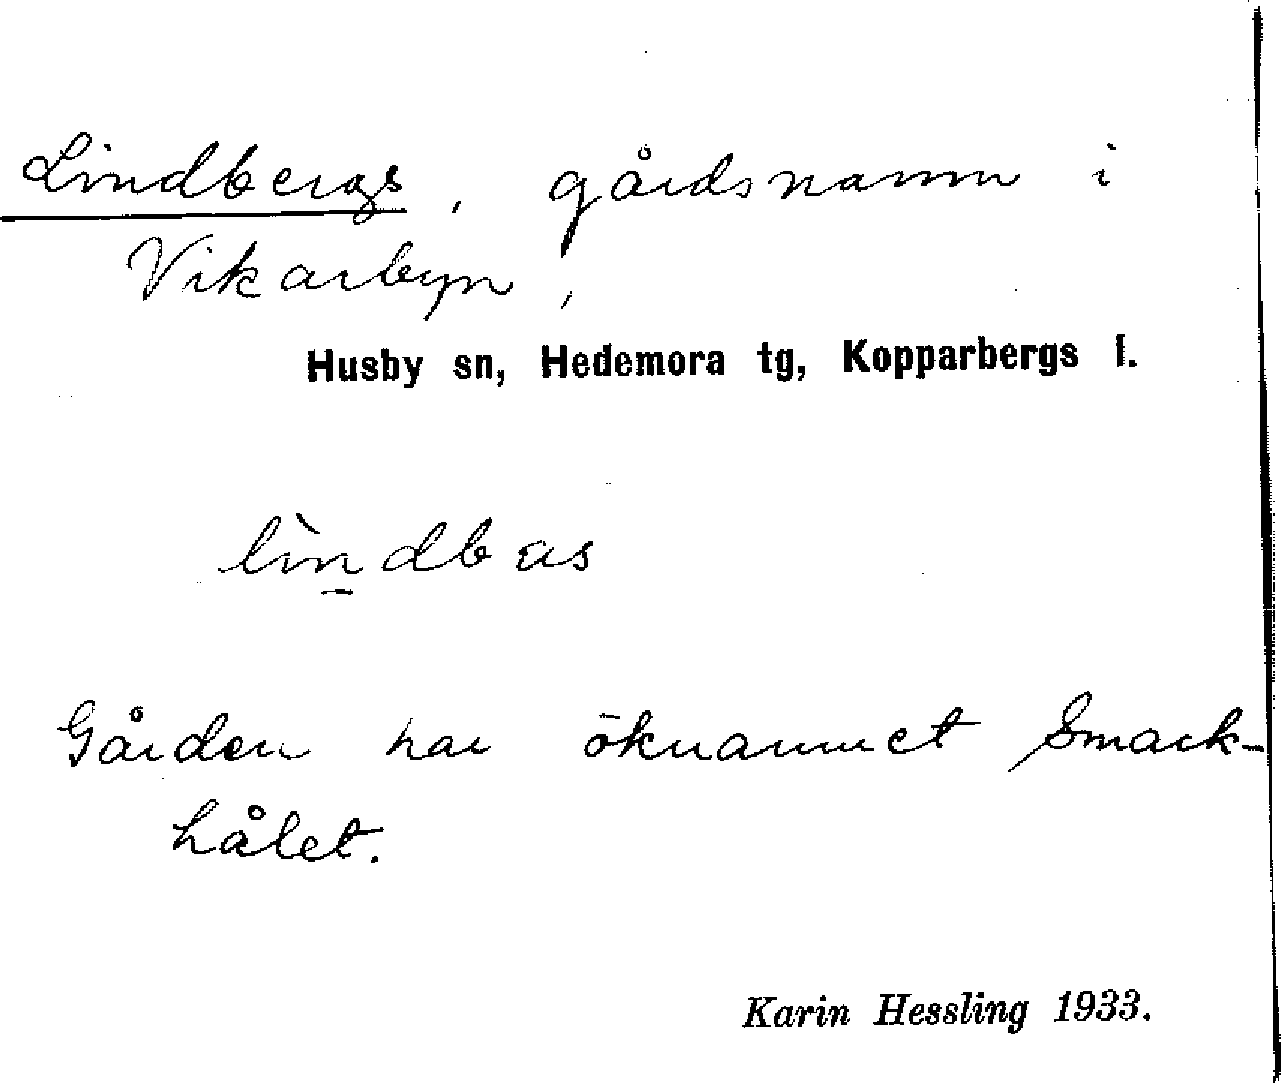 Lindbergs, gårdsnamn i
Vikarbyn,
Husby sn, Hedemora tg, Kopparbergs l.
Gården har öknamnet Smack-
hålet.
Karin Hessling 1933.